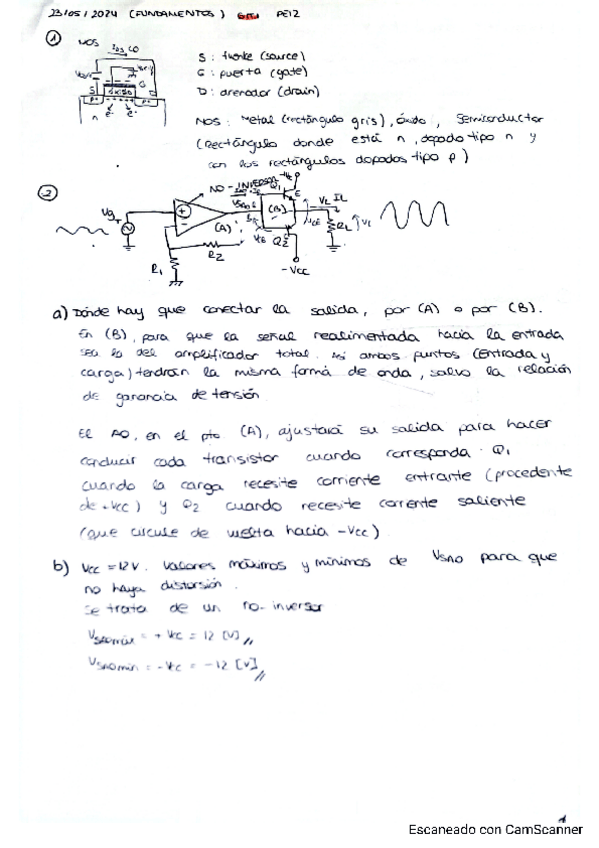 23/05/2024 (FUNDAMENTOS) PE12
1 MOS
S : fuente (source)
G : puerta (gate)
D : drenador (drain)
MOS : Metal (rectángulo gris), óxido, Semiconductor
(Rectángulo donde está n, dopado tipo n y
con los rectángulos dopados tipo p)
2 NO-INVERSOR
Vg
(A)
(B)
Q1
Q2
R1
R2
RL
VL IL
-Vcc
a) Dónde hay que conectar la salida, por (A) o por (B).
En (B), para que la señal realimentada hacia la entrada
sea la del amplificador total. Así ambos puntos (entrada y
carga) tendrán la misma forma de onda, salvo la relación
de ganancia de tensión.
El AO, en el pto (A), ajustará su salida para hacer
conducir cada transistor cuando corresponda. Q1
cuando la carga necesite corriente entrante (procedente
de +Vcc) y Q2 cuando necesite corriente saliente
(que circule de vuelta hacia -Vcc)
b) Vcc = 12V. Valores máximos y mínimos de VSAO para que
no haya distorsión.
Se trata de un no-inversor
VSAOmáx = + Vcc = 12 [V] //
VSAOmín = -Vcc = -12 [V] //
1
Escaneado con CamScanner